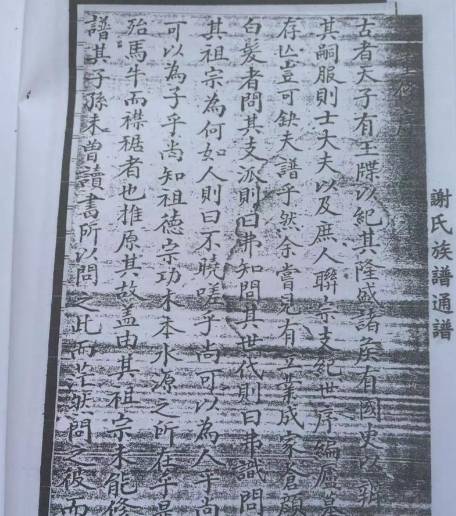 謝氏族譜通譜
古者天子有玉牒以紀其隆盛諸侯有國史以辨
其嗣服則士大夫以及庶人聯宗支紀世序編廬墓
存亾豈可缺夫譜乎然余嘗見有立業成家蒼顔
白髮者問其支派則曰弗知問其世代則曰弗識問
其祖宗為何如人則曰不曉嗟乎尚可以為人乎尚
可以為子乎尚知祖德宗功木本水源之所在乎是
殆馬牛而襟裾者也推原其故盖由其祖宗未能修
譜其子孫未曾讀書所以問之此而茫然問之彼而